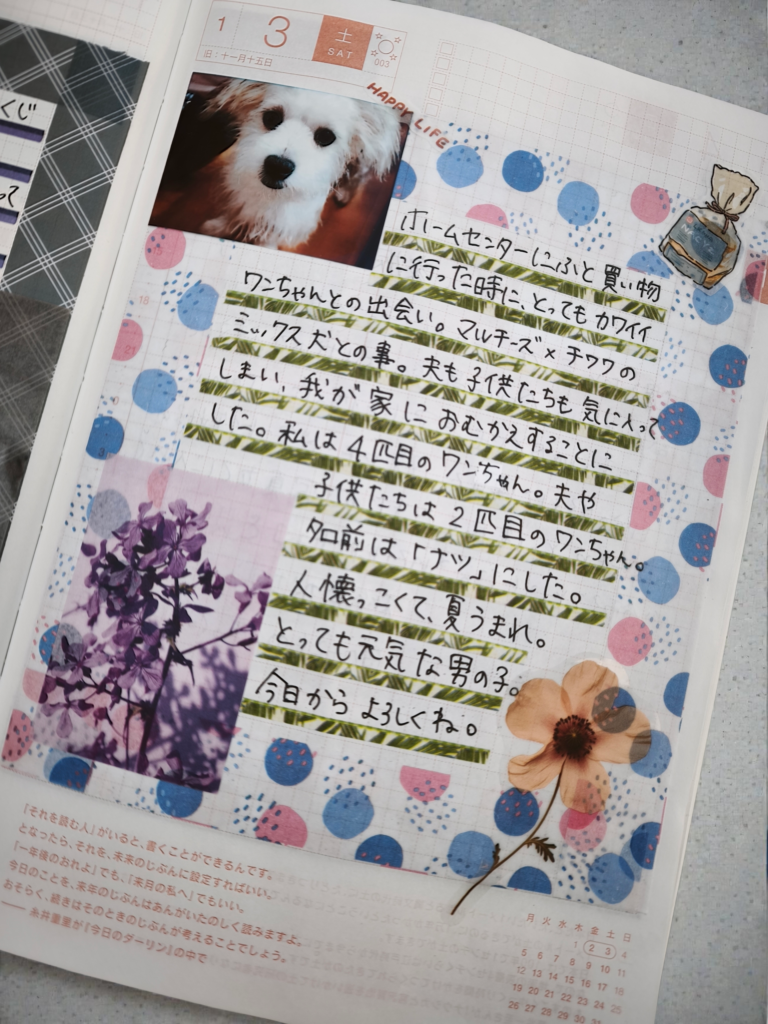 くじ
って
1 3 土 SAT 003
旧:十一月十五日
HAPPY LIFE
ホームセンターにふと買い物
に行った時に、とってもカワイイ
ワンちゃんとの出会い。マルチーズ×チワワの
ミックス犬との事。夫も子供たちも気に入って
しまい、我が家におむかえすることに
した。私は4匹目のワンちゃん。夫や
子供たちは2匹目のワンちゃん。
名前は「ナツ」にした。
人懐っこくて、夏うまれ。
とっても元気な男の子。
今日からよろしくね。
18
21
「それを読む人」がいると、書くことができるんです。
となったら、それを、未来のじぶんに設定すればいい。
「一年後のおれよ」でも、「来月の私へ」でもいい。
今日のことを、来年のじぶんはあんがいたのしく読みますよ。
おそらく、続きはそのときのじぶんが考えることでしょう。
──糸井重里が『今日のダーリン』の中で
月 火 水 木 金 土 日
1 2 3 4
5 6 7 8 9 10 11
12 13 14 15 16 17 18
19 20 21 22 23 24 25
26 27 28 29 30 31